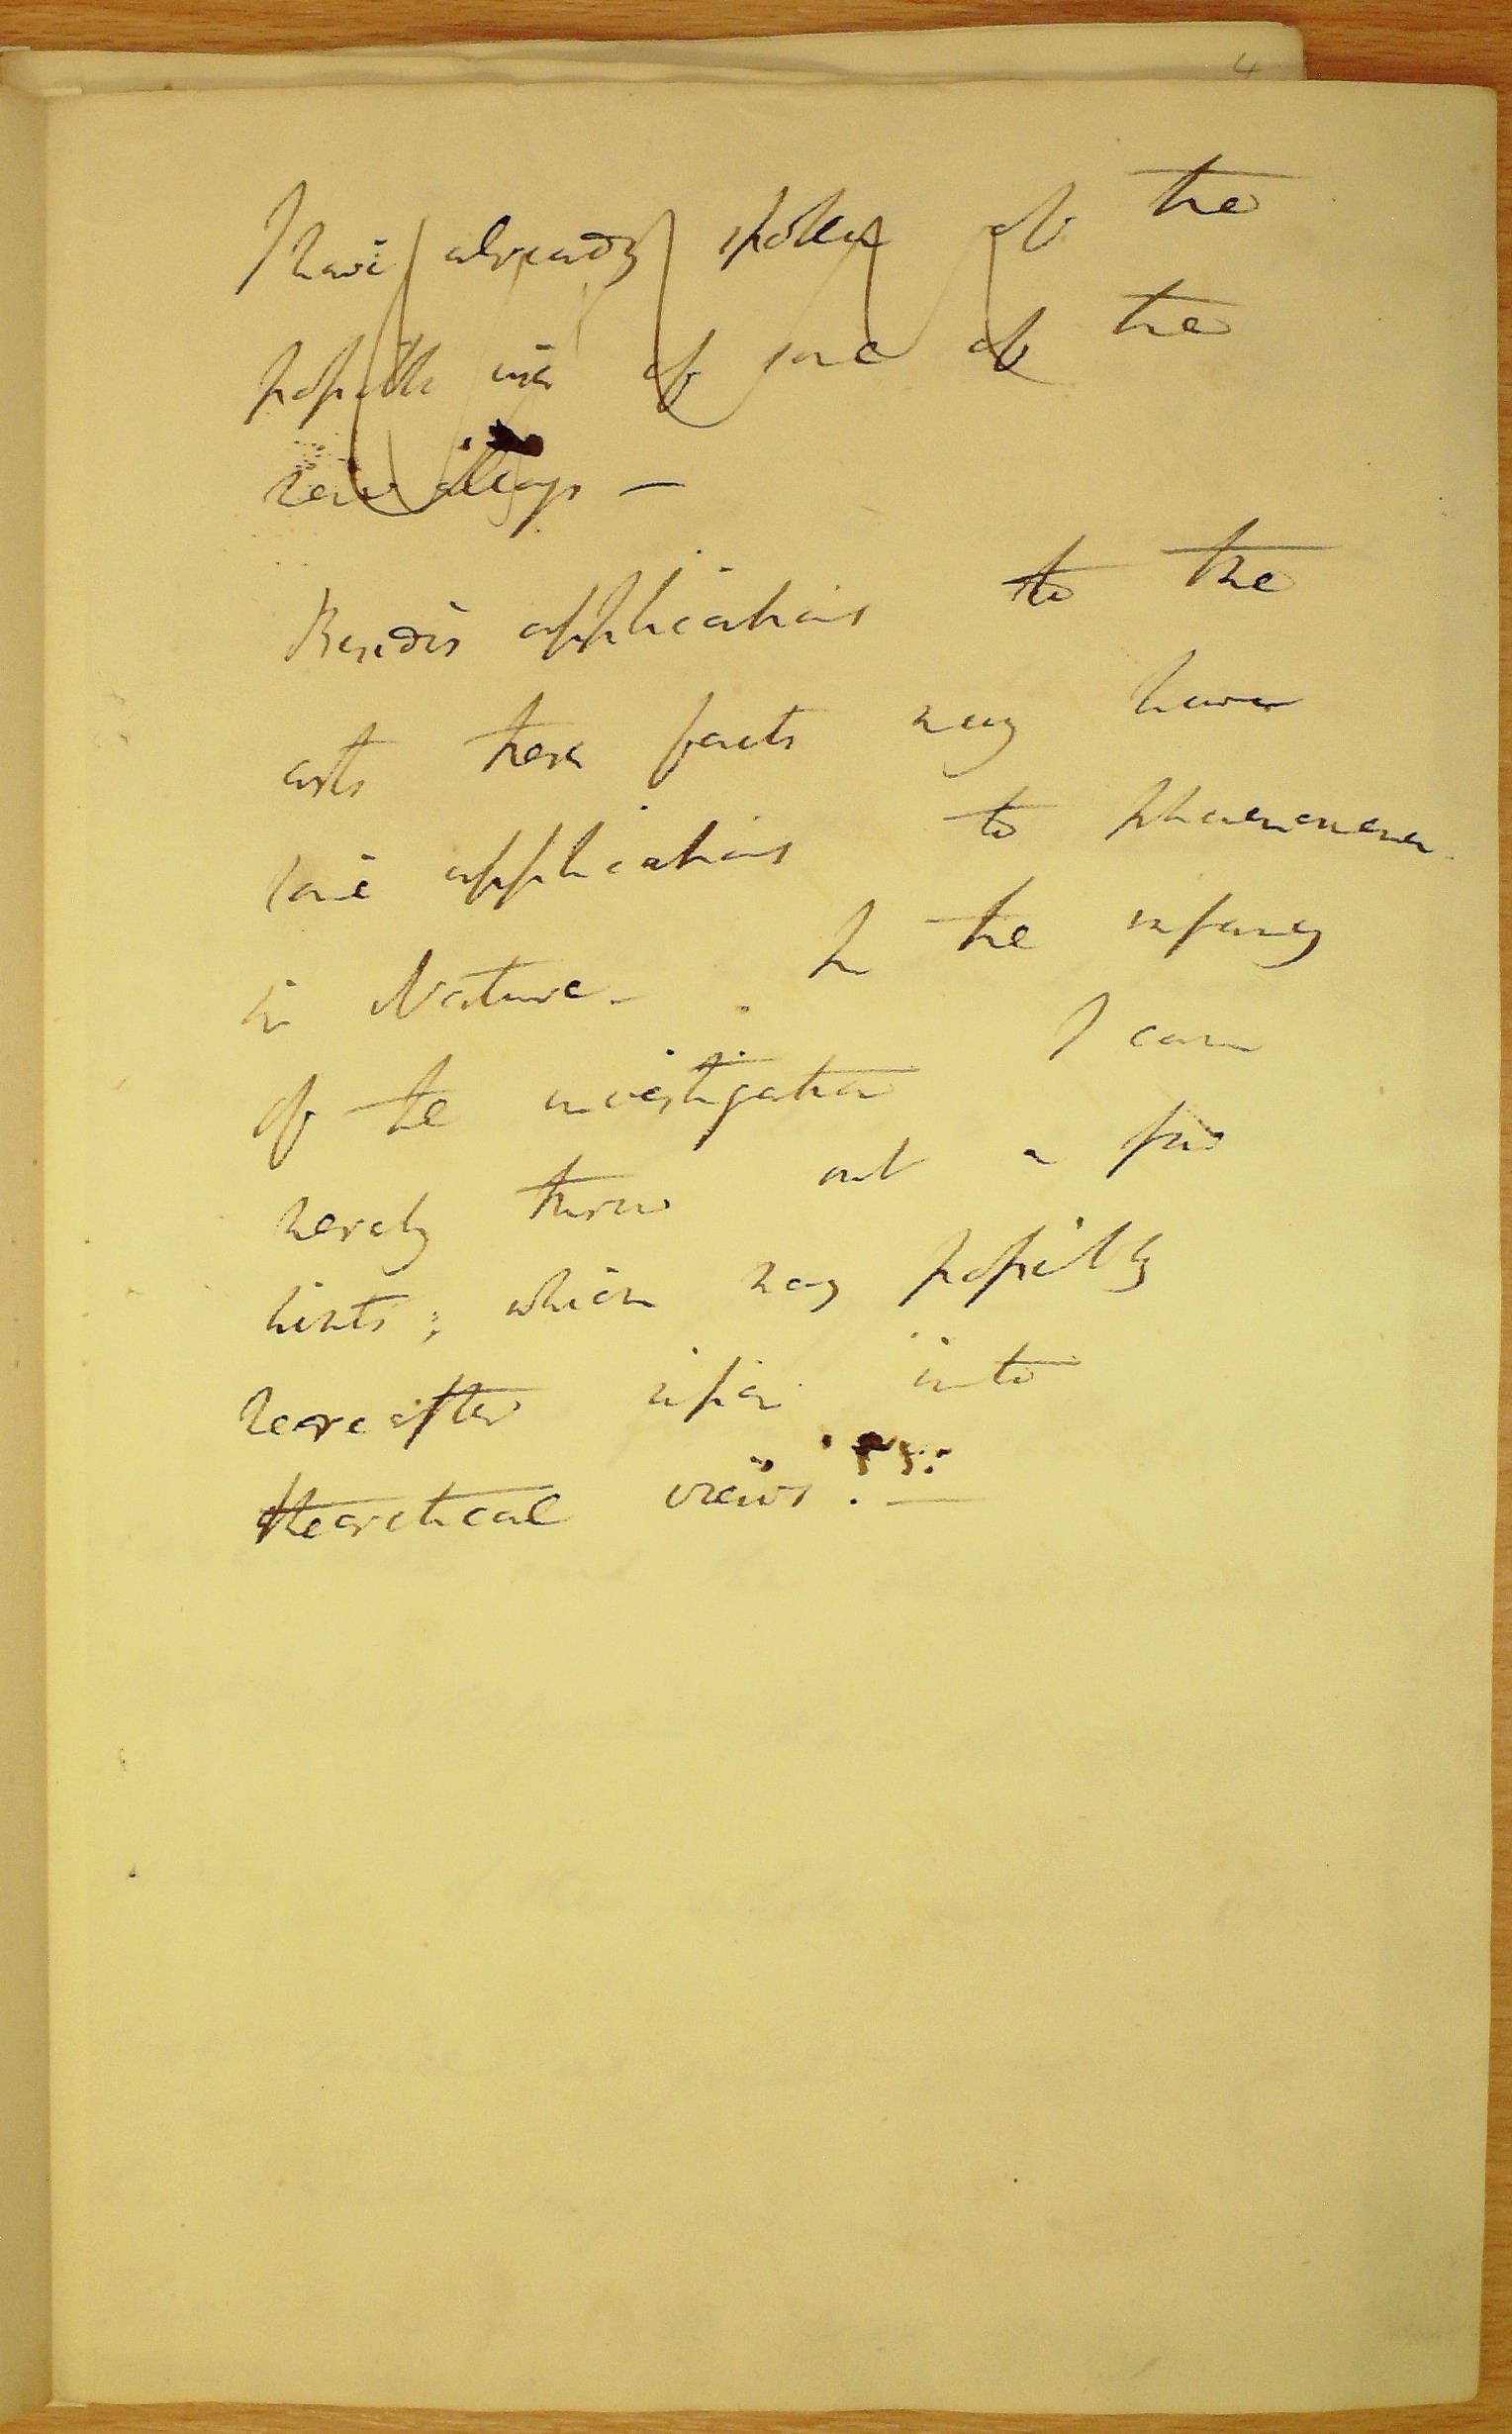 4
I have already spoken of the
possible use of some of the
new alloys –
Besides applications to the
arts these facts may have
some applications to phaenomena
in Nature – . In the infancy
of the investigation I can
merely throw out a few
hints; which may possibly
hereafter ripen into
theoretical views!!! –